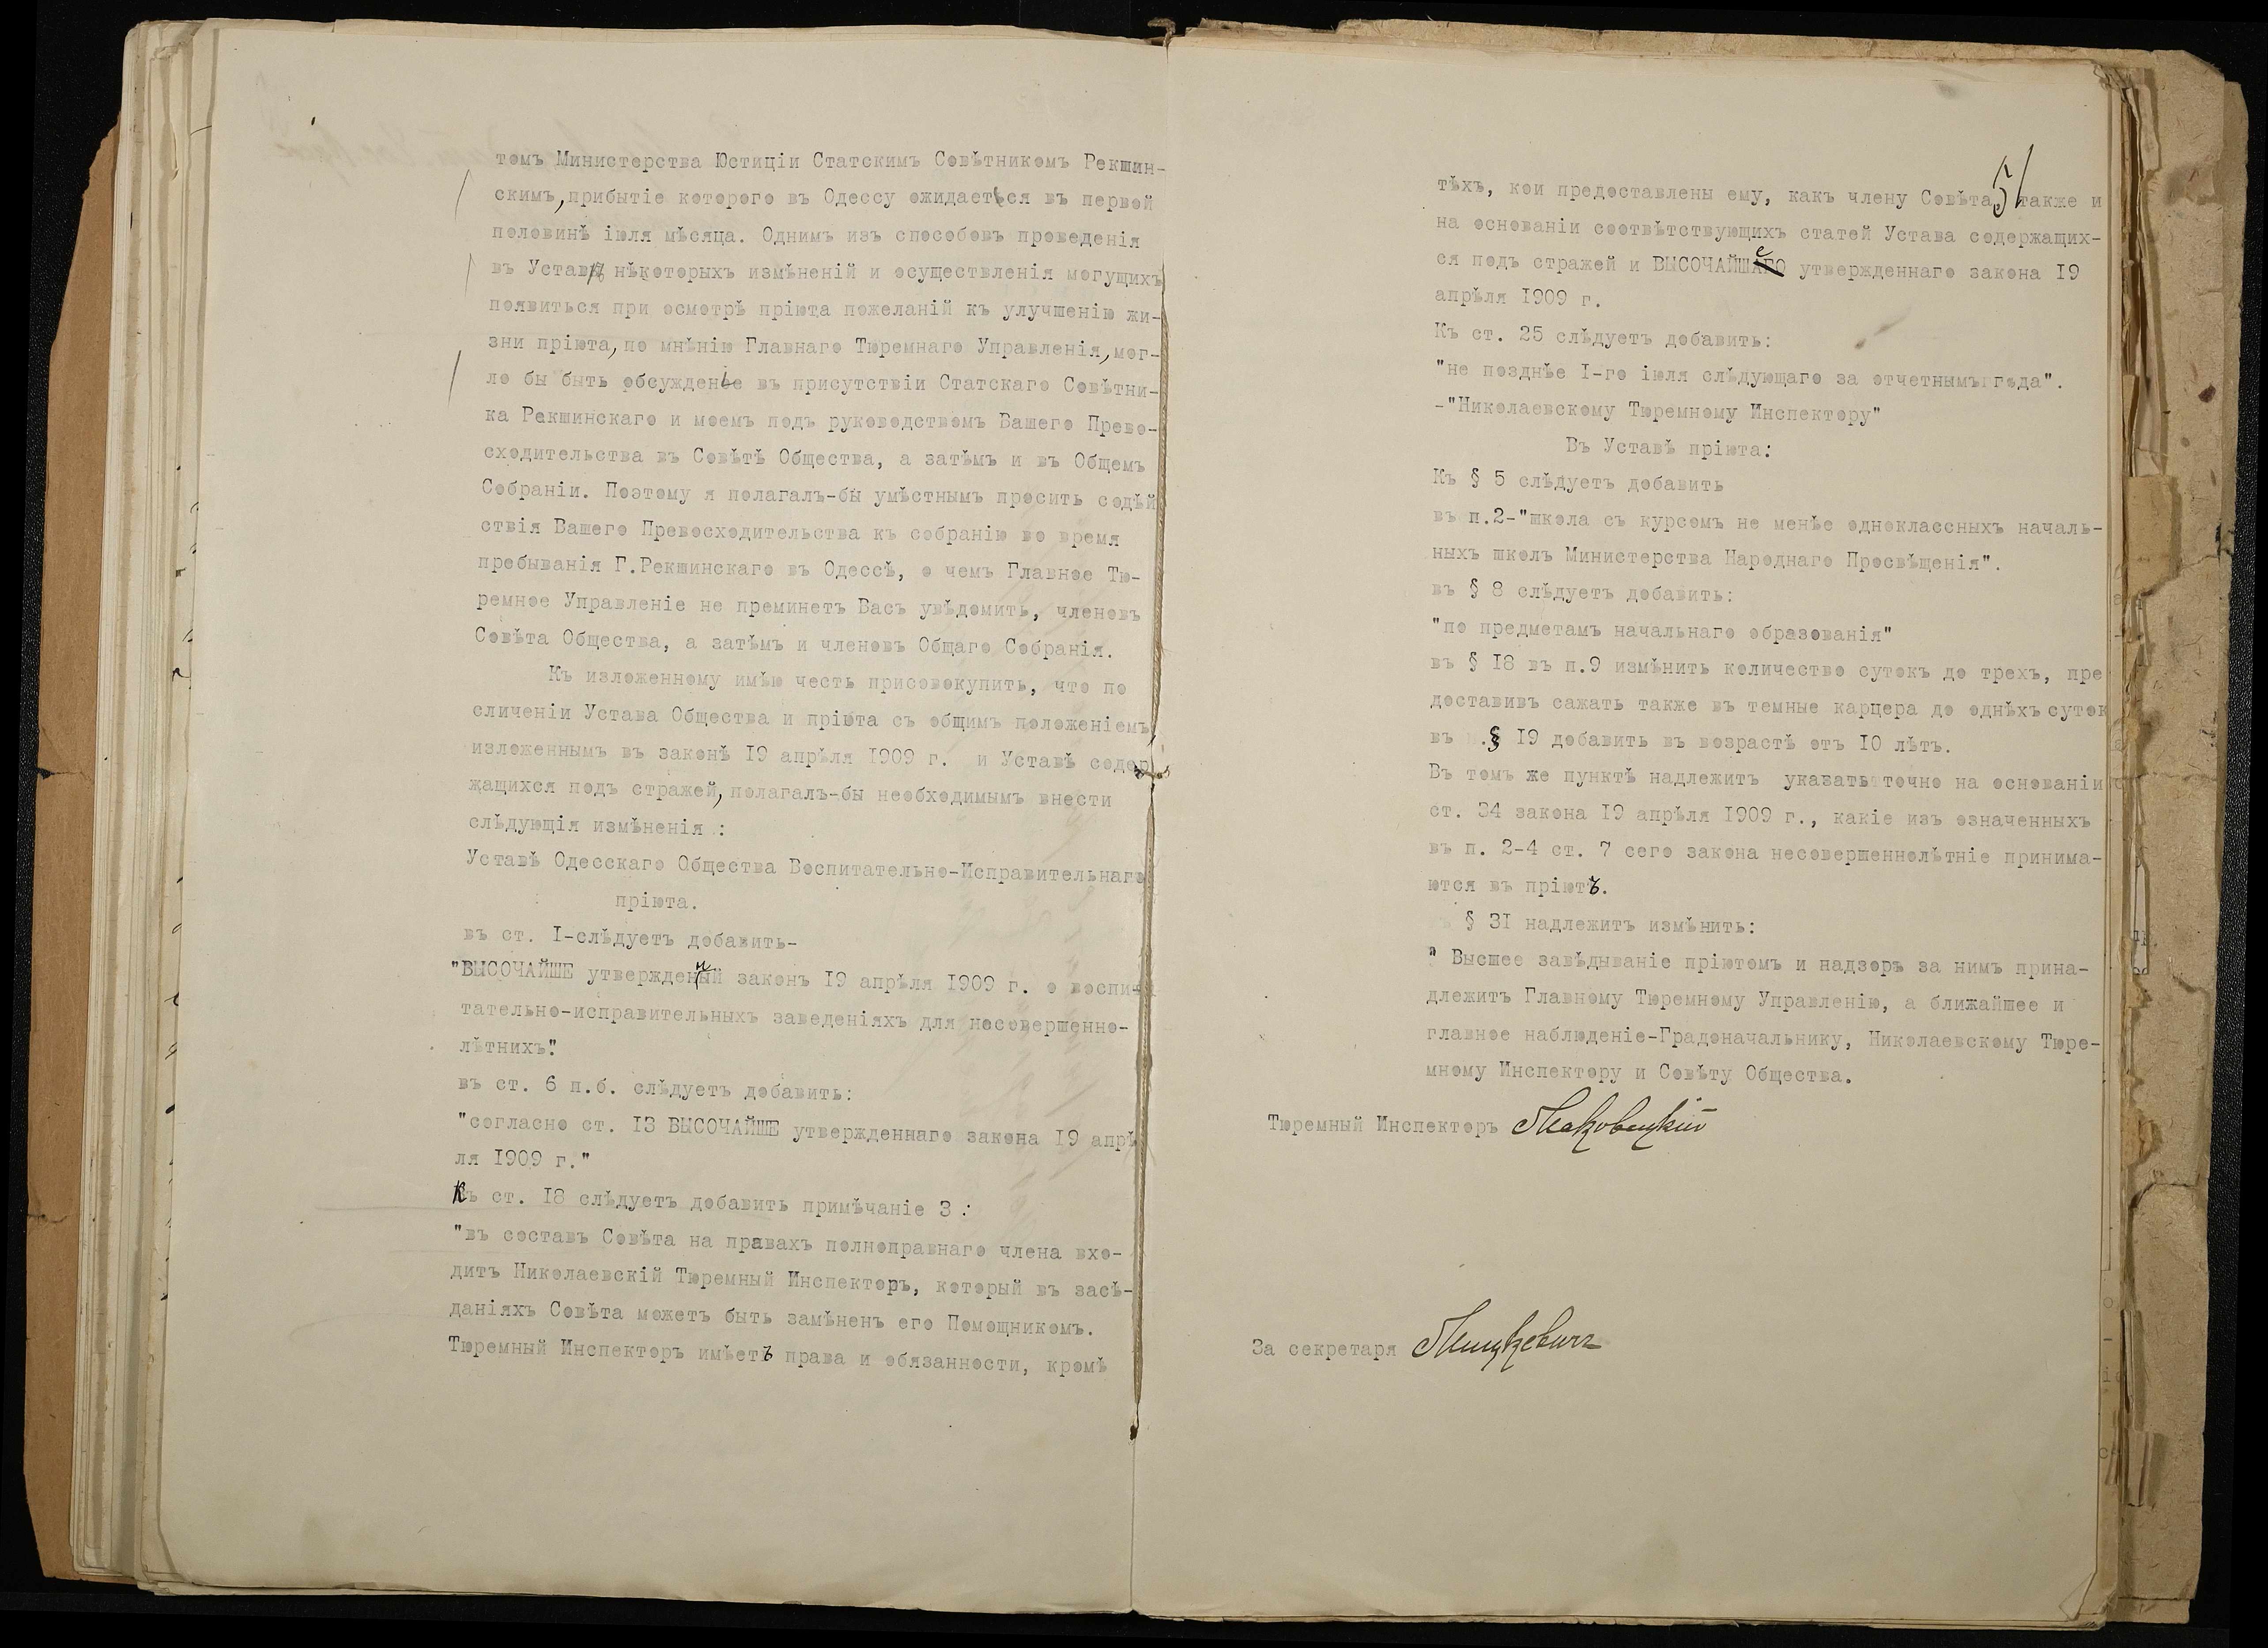 томъ Министерства Юстиціи Статскимъ Совѣтникомъ Рекшин-
скимъ, прибытіе котораго въ Одессу ожидается въ первой
половинѣ іюля мѣсяца. Однимъ изъ способовъ проведенія
въ Уставѣ нѣкоторыхъ измѣненій и осуществленія могущихъ
появиться при осмотрѣ пріюта пожеланій къ улучшенію жи-
зни пріюта, по мнѣнію Главнаго Тюремнаго Управленія, мог-
ло бы быть обсужденіе въ присутствіи Статскаго Совѣтни-
ка Рекшинскаго и моемъ подъ руководствомъ Вашего Прево-
сходительства въ Совѣтѣ Общества, а затѣмъ и въ Общемъ
Собраніи. Поэтому я полагалъ-бы умѣстнымъ просить содѣй
ствія Вашего Превосходительства къ собранію во время
пребыванія Г.Рекшинскаго въ Одессѣ, о чемъ Главное Тю-
ремное Управленіе не преминетъ Васъ увѣдомить, членовъ
Совѣта Общества, а затѣмъ и членовъ Общаго Собранія.
Къ изложенному имѣю честь присовокупить, что по
сличеніи Устава Общества и пріюта съ общимъ положеніемъ,
изложеннымъ въ законѣ 19 апрѣля 1909 г. и Уставѣ содер
жащихся подъ стражей, полагалъ-бы необходимымъ внести
слѣдующія измѣненія :
Уставѣ Одесскаго Общества Воспитательно-Исправительнаго
пріюта.
въ ст. I-слѣдуетъ добавить-
"ВЫСОЧАЙШЕ утвержденный законъ 19 апрѣля 1909 г. о воспи-
тательно-исправительныхъ заведеніяхъ для несовершенно-
лѣтнихъ".
въ ст. 6 п.б. слѣдуетъ добавить:
"согласно ст. 13 ВЫСОЧАЙШЕ утвержденнаго закона 19 апрѣ
ля 1909 г."
Къ ст. 18 слѣдуетъ добавить примѣчаніе 3 :
"въ составъ Совѣта на правахъ полноправнаго члена вхо-
дитъ Николаевскій Тюремный Инспекторъ, который въ засѣ-
даніяхъ Совѣта можетъ быть замѣненъ его Помощникомъ.
Тюремный Инспекторъ имѣетъ права и обязанности, кромѣ
51
тѣхъ, кои предоставлены ему, какъ члену Совѣта также и
на основаніи соотвѣтствующихъ статей Устава содержащих-
ся подъ стражей и ВЫСОЧАЙШе утвержденнаго закона 19
апрѣля 1909 г.
Къ ст. 25 слѣдуетъ добавить:
"не позднѣе I-го іюля слѣдующаго за отчетнымъ года".
-"Николаевскому Тюремному Инспектору"
Въ Уставѣ пріюта:
Къ § 5 слѣдуетъ добавить
въ п.2-"школа съ курсомъ не менѣе одноклассныхъ началь-
ныхъ школъ Министерства Народнаго Просвѣщенія".
въ § 8 слѣдуетъ добавить:
"по предметамъ начальнаго образованія"
въ § 18 въ п.9 измѣнить количество сутокъ до трехъ, пре
доставивъ сажать также въ темные карцера до однѣхъ суток
въ § 19 добавить въ возрастѣ отъ 10 лѣтъ.
Въ томъ же пунктѣ надлежитъ указать точно на основаніи
ст. 34 закона 19 апрѣля 1909 г., какіе изъ означенныхъ
въ п. 2-4 ст. 7 сего закона несовершеннолѣтніе принима-
ются въ пріютъ.
§ 31 надлежитъ измѣнить:
" Высшее завѣдываніе пріютомъ и надзоръ за нимъ прина-
длежитъ Главному Тюремному Управленію, а ближайшее и
главное наблюденіе-Градоначальнику, Николаевскому Тюре-
мному Инспектору и Совѣту Общества.
Тюремный Инспекторъ
За секретаря